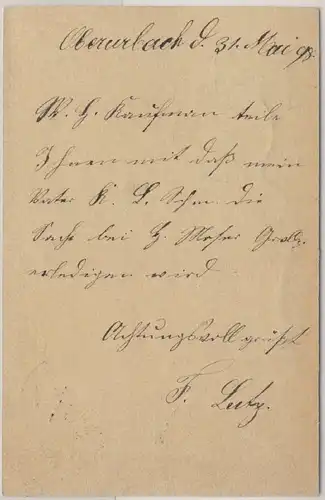 Oberurbach d. 31. Mai 98.
W. H. Kaufman teile
Ihnen mit daß mein
Vater K. L. Schm. die
Sache bei H. Moser
erledigen wird
Achtungsvoll grüßt
F. Lutz.